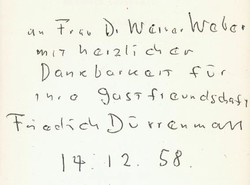 an Frau Dr Werner Weber
mit herzlicher
Dankbarkeit für
ihre Gastfreundschaft
Friedrich Dürrenmatt
14. 12. 58.